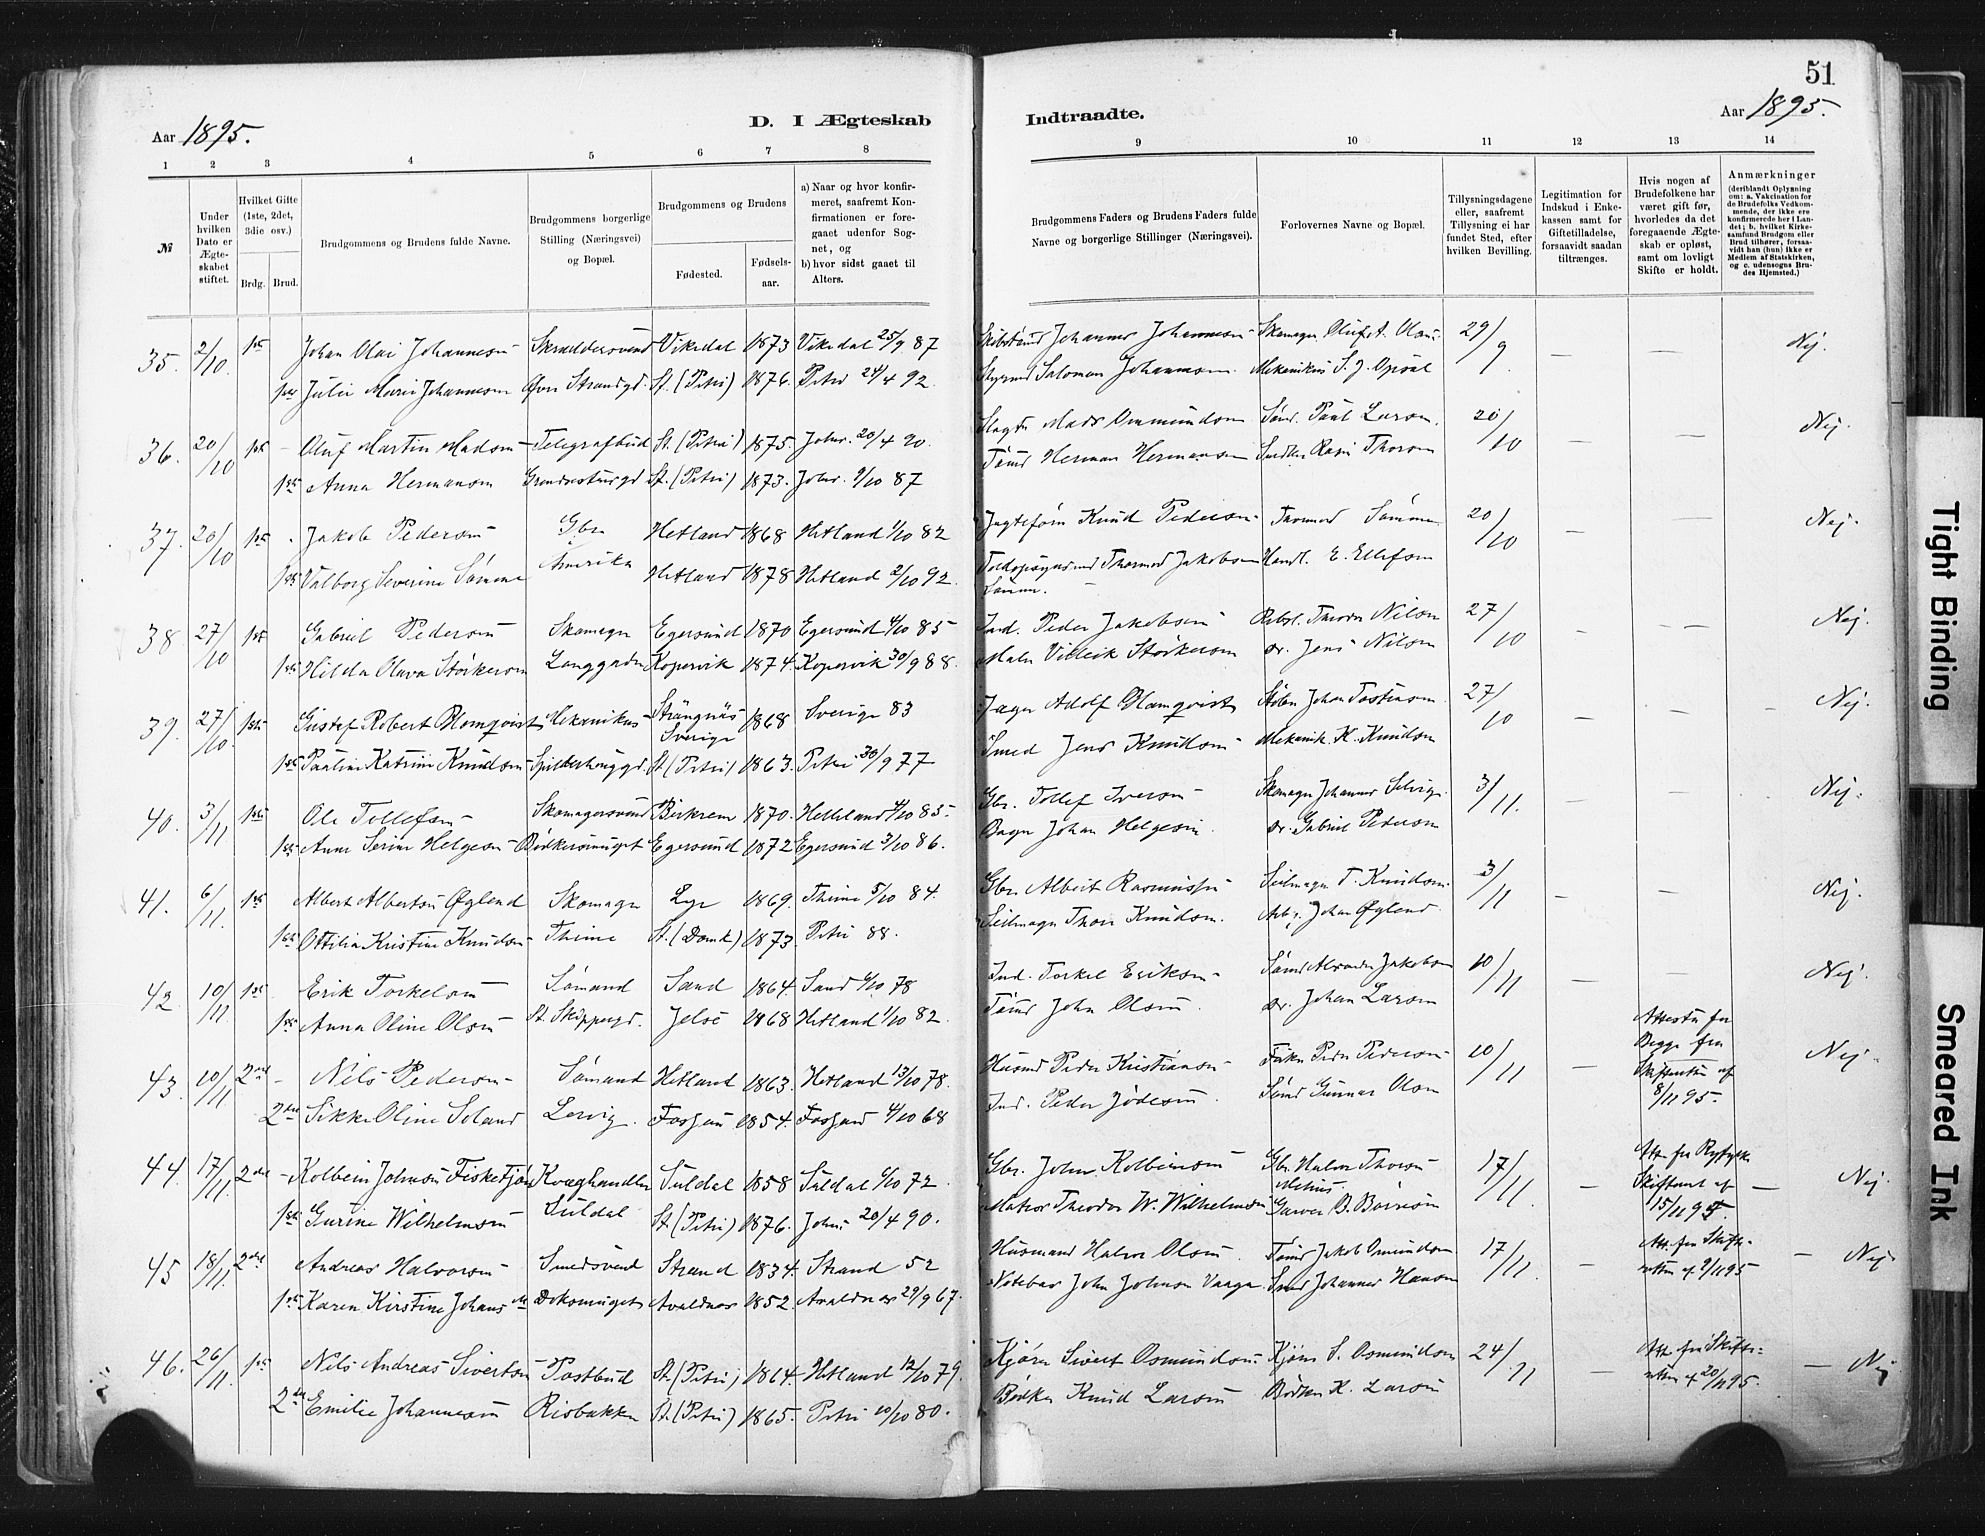 51
Aar 1895.
D. I Ægteskab Indtraadte.
Aar 1895.
1 2 3 4 5 6 7 8 9 10 11 12 13 14
№
Under hvilken Dato er Ægteskabet stiftet.
Hvilket Gifte (1ste, 2det, 3die osv.)
Brdg. Brud.
Brudgommens og Brudens fulde Navne.
Brudgommens borgerlige Stilling (Næringsvei) og Bopæl.
Brudgommens og Brudens
Fødested. Fødselsaar.
a) Naar og hvor konfirmeret, saafremt Konfirmationen er foregaaet udenfor Sognet, og
b) hvor sidst gaaet til Alters.
Brudgommens Faders og Brudens Faders fulde Navne og borgerlige Stillinger (Næringsvei).
Forlovernes Navne og Bopæl.
Tillysningsdagene eller, saafremt Tillysning ei har fundet Sted, efter hvilken Bevilling.
Legitimation for Indskud i Enkekassen samt for Giftetilladelse, forsaavidt saadan tiltrænges.
Hvis nogen af Brudefolkene har været gift før, hvorledes da det foregaaende Ægteskab er opløst, samt om lovligt Skifte er holdt.
Anmærkninger
(deriblandt Oplysning om: a. Vakcination for de Brudefolks Vedkommende, der ikke ere konfirmerede her i Landet; b. hvilket Kirkesamfund Brudgom eller Brud tilhører, forsaavidt han (hun) ikke er Medlem af Statskirken, og c. udensogns Brudes Hjemsted.)
35. 2/10. 1ste Johan Olai Johannesen Skræddersvend Vikedal 1873 Vikedal 25/9 87 Johannes Johannesen Skomager 29/9 — — Nej.
1ste Julie Marie Johannesen Øvre Strandgd. St. (Petri) 1876. Petri 24/4 92. Salomon Johannesen Mekanikus S. J. Opsal
36. 20/10 1ste Oluf Martin Madsen Telegrafbud St. (Petri) 1875. Johs. 20/4 90. Mads Ommundsen Paul Larsen. 20/10 — — Nej.
1ste Anna Hermansen St. (Petri) 1873. Johs. 9/10 87 Tømd Herman Hermansen Thorsen
37. 20/10 1ste Jakob Pedersen Gbr Hetland 1868 Hetland 1/10 82 Knud Pedersen Thormod Sømme 20/10 — — Nej.
1ste Valborg Severine Sømme Amerika Hetland 1878 Hetland 2/10 92. Thormod Jakobsen Handl. E. Ellefsen
Sømme.
38 27/10 1ste Gabriel Pedersen Skomager Egersund 1870 Egersund 4/10 85 Ind. Peder Jakobsen Theodor Nilsen 27/10 — — Nej.
1ste Hilda Olava Størkersen Langgaden Kopervik 1874. Kopervik 30/9 88. Maler Villeik Størkersen Do. Jens Nilsen
39. 27/10. 1ste Gustaf Robert Blomqvist Mekanikus Strängnäs Sverige 1868 Sverige 83 Jæger Adolf Blomqvist Johan Tostensen 27/10 — — Nej.
1ste Pauline Katrine Knudsen St. (Petri) 1863. Petri 30/9 77 Smed Jens Knudsen Mekanik. K. Knudsen
40. 3/11. 1ste Ole Tollefsen Skomagersvend Birkrem 1870. Helleland 4/10 85. Gbr. Tollef Iversen Skomager Johannes Selvig 3/11. — — Nej.
1ste Anne Serine Helgesen Bødkersmuget Egersund 1872 Egersund 3/10 86. Bager Johan Helgesen. Do. Gabriel Pedersen
41. 6/11. 1ste Albert Albertsen Øglend Skomager Lye 1869. Thime 5/10 84. Gbr. Albert Rasmussen Seilmager T. Knudsen. 3/11 — — Nej.
1ste Ottilia Kristine Knudsen Thime St. (Domk) 1873 Petri 88. Seilmager Thore Knudsen. Johan Øglend.
42 10/11. 1ste Erik Torkelsen Sømand Sand 1864. Sand 6/10 78 Ind. Torkel Eriksen Jakobsen 10/11 — — Nej.
1ste Anna Oline Olsen St. Skippergd. Jelse 1868 Hetland 1/10 82. Tømd John Olsen. Do. Johan Larsen
43. 10/11. 2det Nils Pedersen Sømand Hetland 1863. Hetland 13/10 78. Husmd Peder Kristiansen Peder Pedersen 10/11 — Attester fra Begge fra Skifteretten af 8/11 95. Nej.
2det Sikke Oline Soland Lervig. Fossan 1854. Fossand 4/10 68 Ind. Peder Sømd Gunnar Olsen
44. 17/11. 2det Kolbein Johnsen Fisketjøn Kvæghandler Suldal 1858 Suldal 6/10 72. Gbr. John Kolbeinsen Gbr. Halvor Thorsen 17/11. — Att. fra Ryfylke Skifteret af 15/11 95. — Nej.
1ste Gurine Wilhelmsen Suldal St. (Petri) 1876. Johs. 20/4 90. Matros Theodor W. Wilhelmsen Garver B. Børresen
45 18/11 2det Andreas Halvorsen Smedsvend Strand 1834. Strand 52 Husmand Halvor Olsen. Jakob Omundsen 17/11. — Att. fra Skifteretten af 9/11 95 — Nej.
1ste Karen Kirstine Johans dt Doksmuget Avaldsnes 1852. Avaldsnes 29/9 67. John Johnsen Vaage Johannes Hansen
46. 26/11. 1ste Nils Andreas Sivertsen Postbud St. (Petri) 1864. Hetland 12/10 79. Kjører Sivert Osmundsen. Kjører S. Osmundsen 24/11 — Att. fra Skifteretten af 20/11 95. — Nej
2det Emilie Johannesen Risbakken St. (Petri) 1865. Petri 10/10 80. Bødker Knud Larsen Bødker K. Larsen
Tight Binding
Smeared Ink